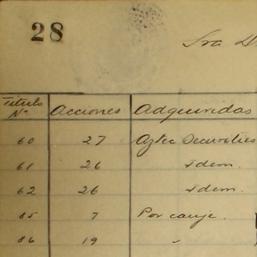 28
Sra
Titulo Nº Acciones Adquiridas
60 27 Aztec Securities
61 26 Idem.
62 26 Idem.
85 7 Por canje.
86 19 "